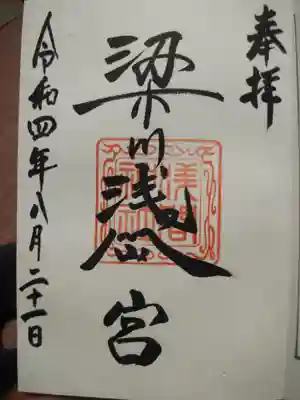 奉拝
梁川浅間宮
令和四年八月二十一日